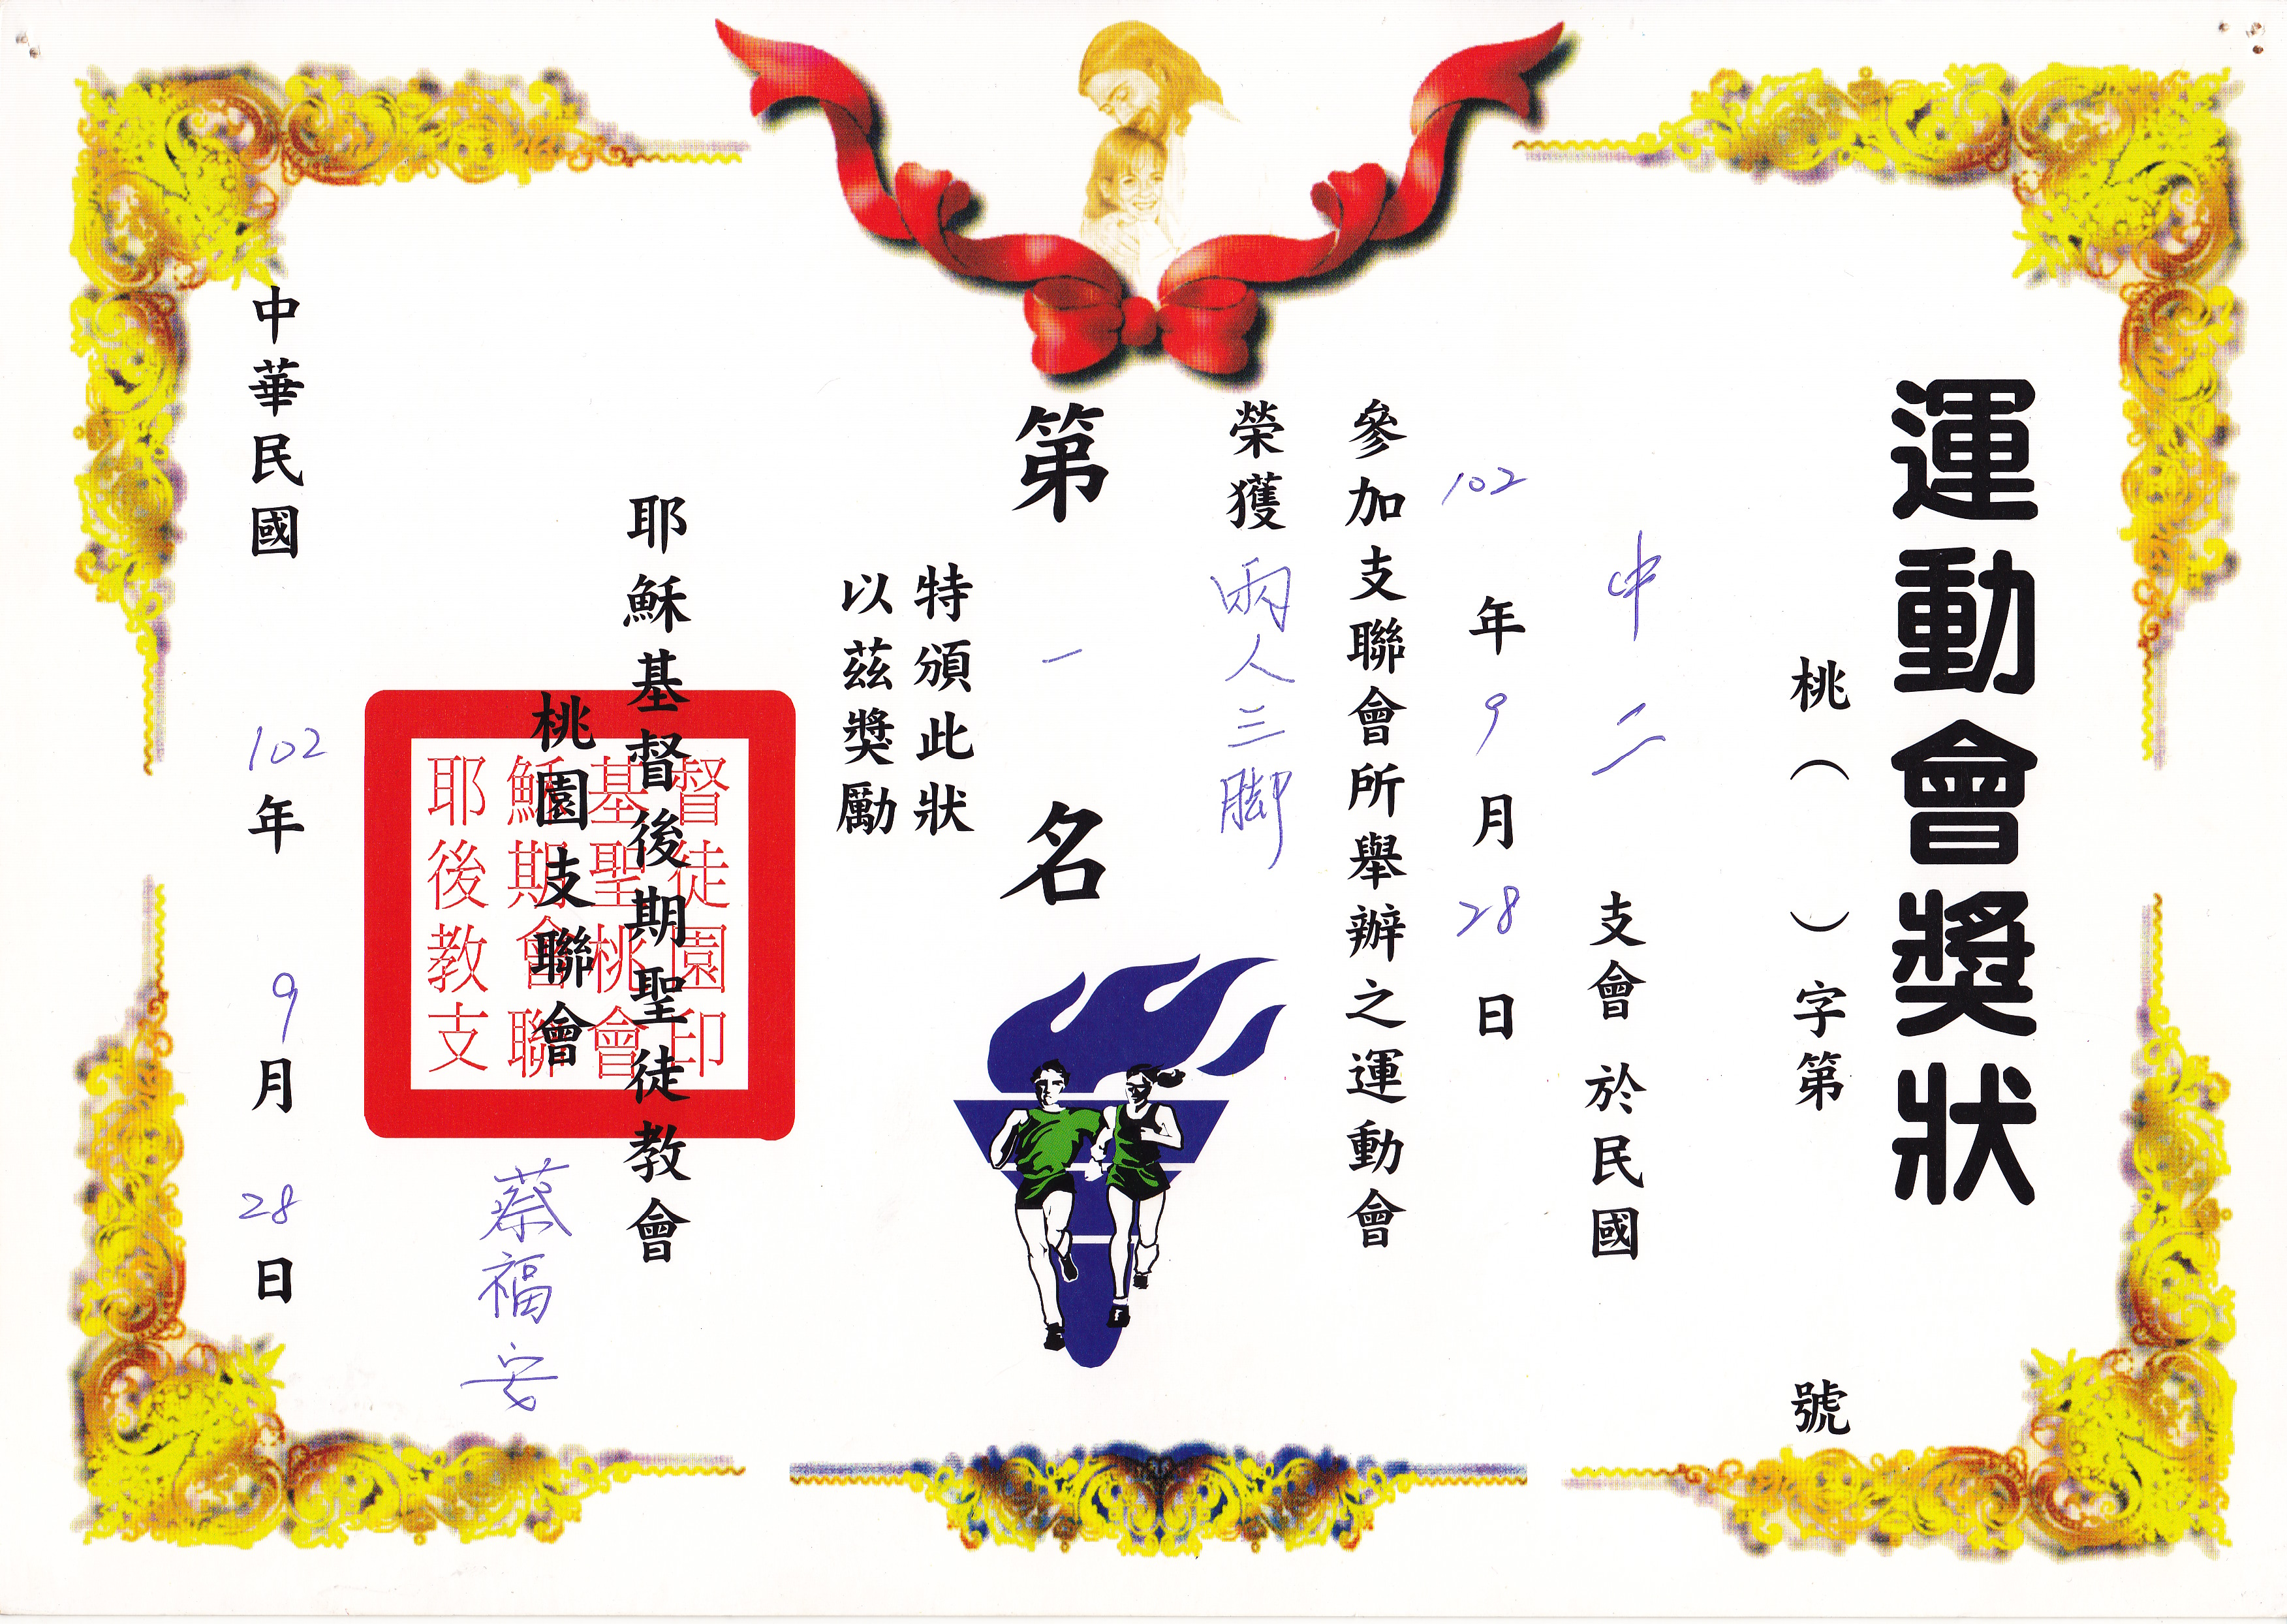 運動會獎狀
桃（　）字第　號
中二　支會 於民國
102年9月28日
參加支聯會所舉辦之運動會
榮獲兩人三脚
第一名
特頒此狀
以茲獎勵
耶穌基督後期聖徒教會
桃園支聯會
蔡福安
耶穌基督
後期聖徒
教會桃園
支聯會印
中華民國 102年9月28日